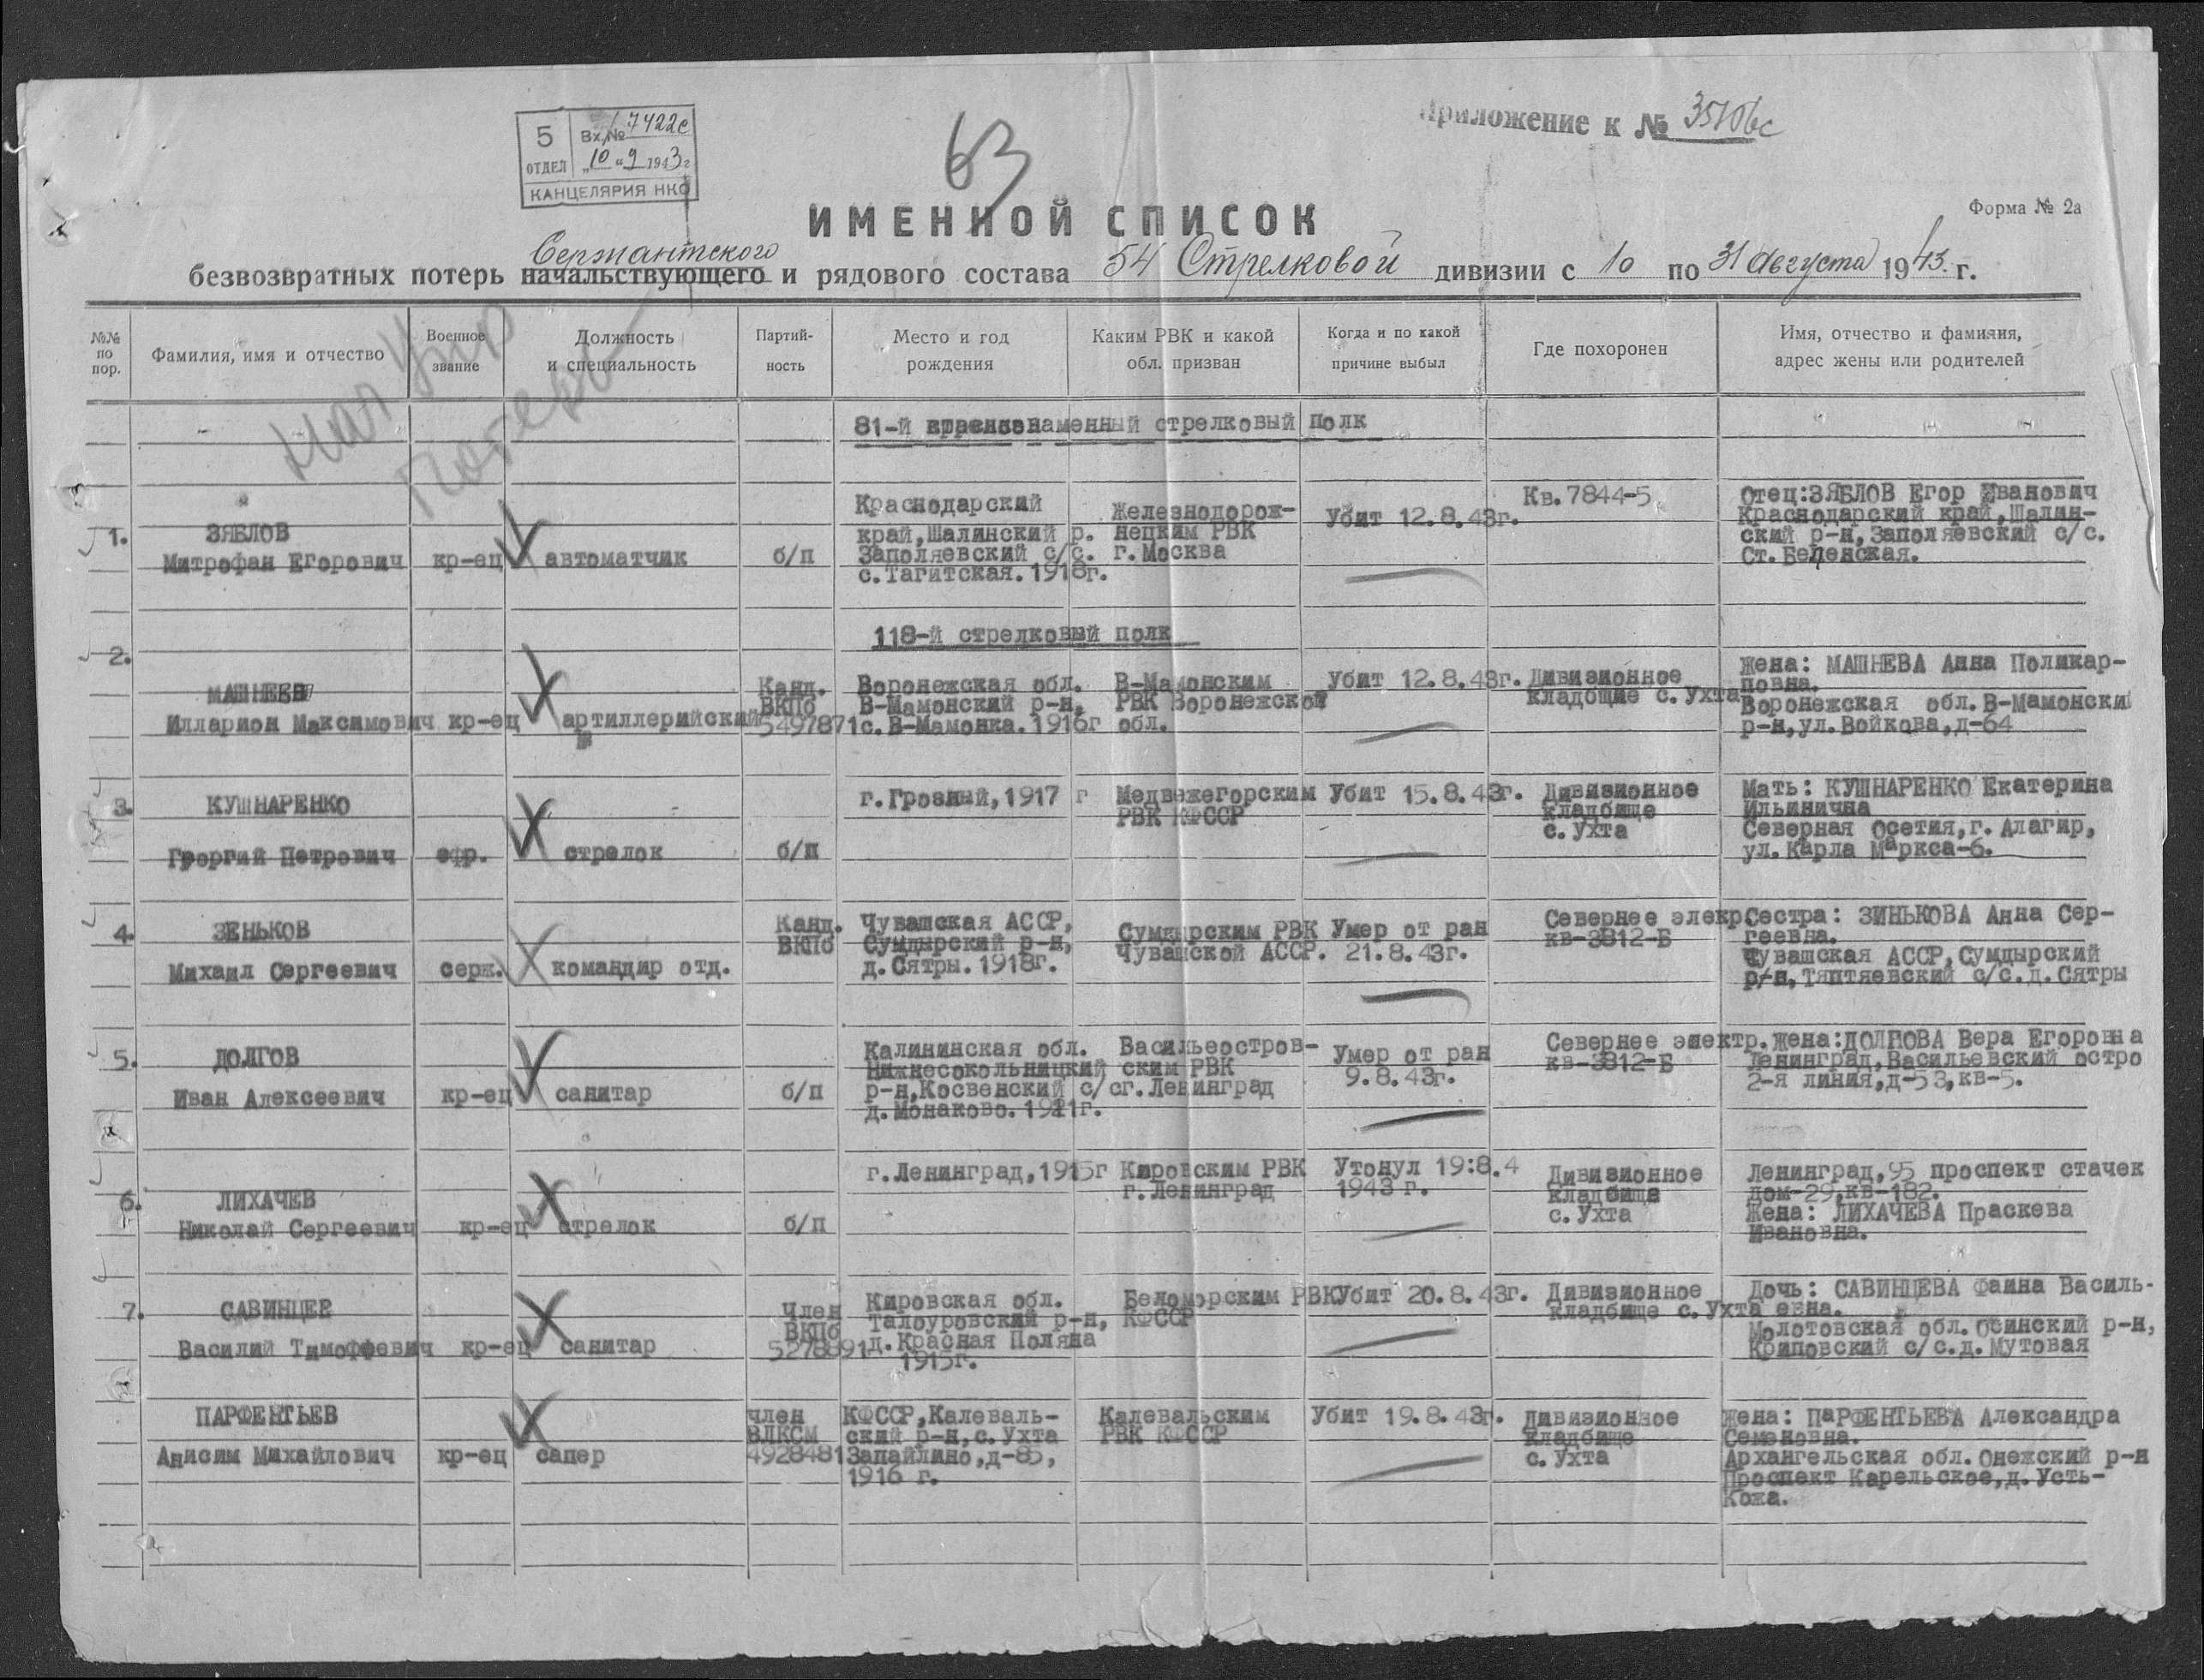 5 ОТДЕЛ
Вх.№ 17422с
"10" 9 1943г
КАНЦЕЛЯРИЯ НКО
63
Приложение к №
Форма № 2а
ИМЕННОЙ СПИСОК
Сержантского
безвозвратных потерь начальствующего и рядового состава 54 Стрелковой дивизии с 10 по 31 Августа 1943 г.
№№ по пор.
Фамилия, имя и отчество
Военное звание
Должность и специальность
Партий-
ность
Место и год рождения
Каким РВК и какой обл. призван
Когда и по какой причине выбыл
Где похоронен
Имя, отчество и фамилия,
адрес жены или родителей
потерь
81-й краснознаменный стрелковый полк
1.
ЗЯБЛОВ
Митрофан Егорович
кр-ец
автоматчик
б/п
Краснодарский
край,Шалинский р.
Заполяевский с/с.
с.Тагитская.1918г.
Железнодорож-
нецким РВК
г.Москва
Убит 12.8.43г.
Кв.7844-5
Отец:ЗЯБЛОВ Егор Иванович
Краснодарский край,Шалин-
ский р-н,Заполяевский с/с.
Ст.Беленская.
118-й стрелковый полк
2.
МАШНЕВ
Илларион Максимович
кр-ец
артиллерийский
Канд.
ВКПб
5497871
Воронежская обл.
В-Мамонский р-н,
с.В-Мамонка.1916г
В-Мамонским
РВК Воронежской
обл.
Убит 12.8.43г.
Дивизионное
кладощие с.Ухта
Жена: МАШНЕВА Анна Поликар-
повна.
Воронежская обл.В-Мамонски
р-н,ул.Войкова,д-64
3.
КУШНАРЕНКО
Георгий Петрович
ефр.
стрелок
б/п
г.Грозный,1917 г
Медвежегорским
РВК КФССР
Убит 15.8.43г.
Дивизионное
кладбище
с.Ухта
Мать: КУШНАРЕНКО Екатерина
Ильинична
Северная Осетия,г.Алагир,
ул.Карла Маркса-6.
4.
ЗЕНЬКОВ
Михаил Сергеевич
серж.
командир отд.
Канд.
ВКПб
Чувашская АССР,
Сундырский р-н,
д.Сятры.1918г.
Сундырским РВК
Чувашской АССР.
Умер от ран
21.8.43г.
Севернее элекр.
кв-3812-Б
Сестра: ЗИНЬКОВА Анна Сер-
геевна.
Чувашская АССР,Сундырский
р-н,Тяптяевский с/с.д.Сятры
5.
ДОЛГОВ
Иван Алексеевич
кр-ец
санитар
б/п
Калининская обл.
Нижнесокольницкий
р-н,Косвенский с/с
д.Монаково.1921г.
Васильеостров-
ским РВК
г.Ленинград
Умер от ран
9.8.43г.
Севернее электр.
кв-3812-Б
Жена:ДОЛГОВА Вера Егоровна
Ленинград,Васильевский остро
2-я линия,д-53,кв-5.
6.
ЛИХАЧЕВ
Николай Сергеевич
кр-ец
стрелок
б/п
г.Ленинград,1915г
Кировским РВК
г.Ленинград
Утонул 19:8.4
1943 г.
Дивизионное
кладбище
с.Ухта
Ленинград,95 проспект стачек
дом-29,кв-182.
Жена: ЛИХАЧЕВА Праскева
Ивановна.
7.
САВИНЦЕВ
Василий Тимоффевич
кр-ец
санитар
Член
ВКПб
5278891
Кировская обл.
Талоуровский р-н,
д.Красная Поляна
1915г.
Беломорским РВК
КФССР
Убит 20.8.43г.
Дивизионное
кладбище с.Ухта
Дочь: САВИНЦЕВА Фаина Василь-
евна.
Молотовская обл.Осинский р-н,
Криповский с/с.д.Мутовая
ПАРФЕНТЬЕВ
Анисим Михайлович
кр-ец
сапер
член
ВЛКСМ
4928481
КФССР,Калеваль-
ский р-н,с.Ухта
Запайлино,д-85,
1916 г.
Калевальским
РВК КФССР
Убит 19.8.43г.
Дивизионное
кладбище
с.Ухта
Жена: ПАРФЕНТЬЕВА Александра
Семеновна.
Архангельская обл.Онежский р-н
Проспект Карельское,д.Усть-
Кожа.